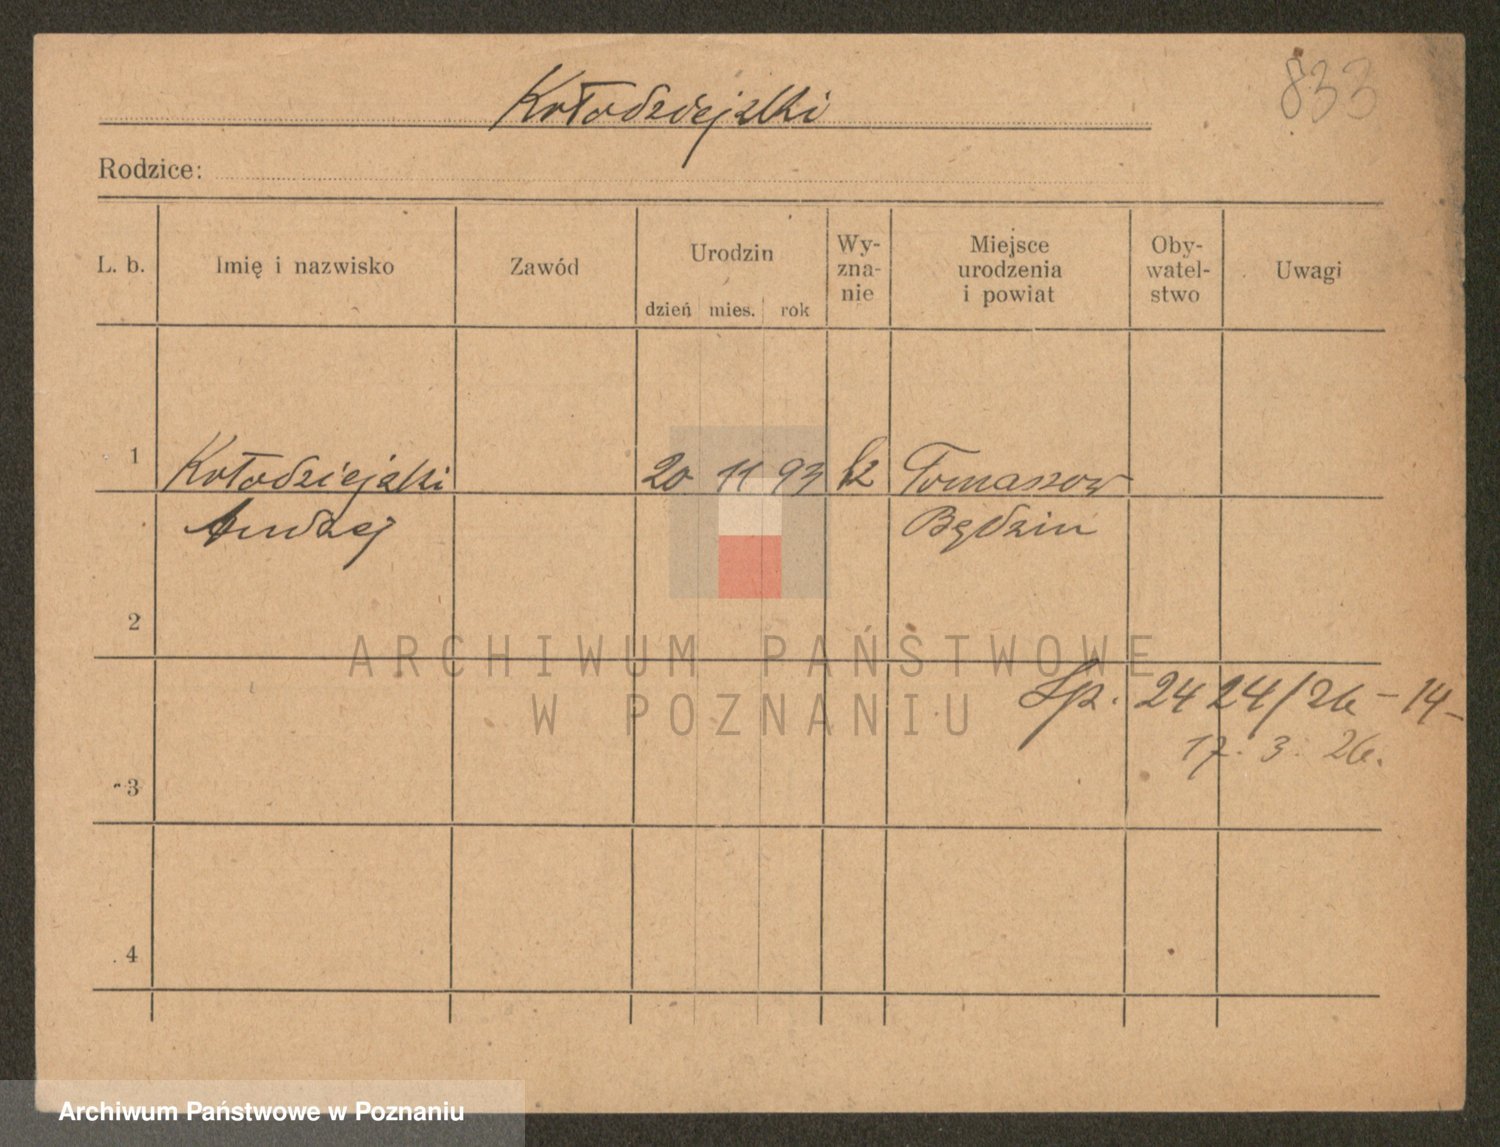 833
Kołodziejski
Rodzice:
L. b. Imię i nazwisko Zawód Urodzin dzień mies. rok Wy-zna-nie Miejsce urodzenia i powiat Oby-watel-stwo Uwagi
1 Kołodziejski 20 11 93 Tomaszow
Andrzej Będzin
2
ARCHIWUM PAŃSTWOWE
W POZNANIU
Sp. 2424/26 - 14 -
17. 3. 26.
3
4
Archiwum Państwowe w Poznaniu